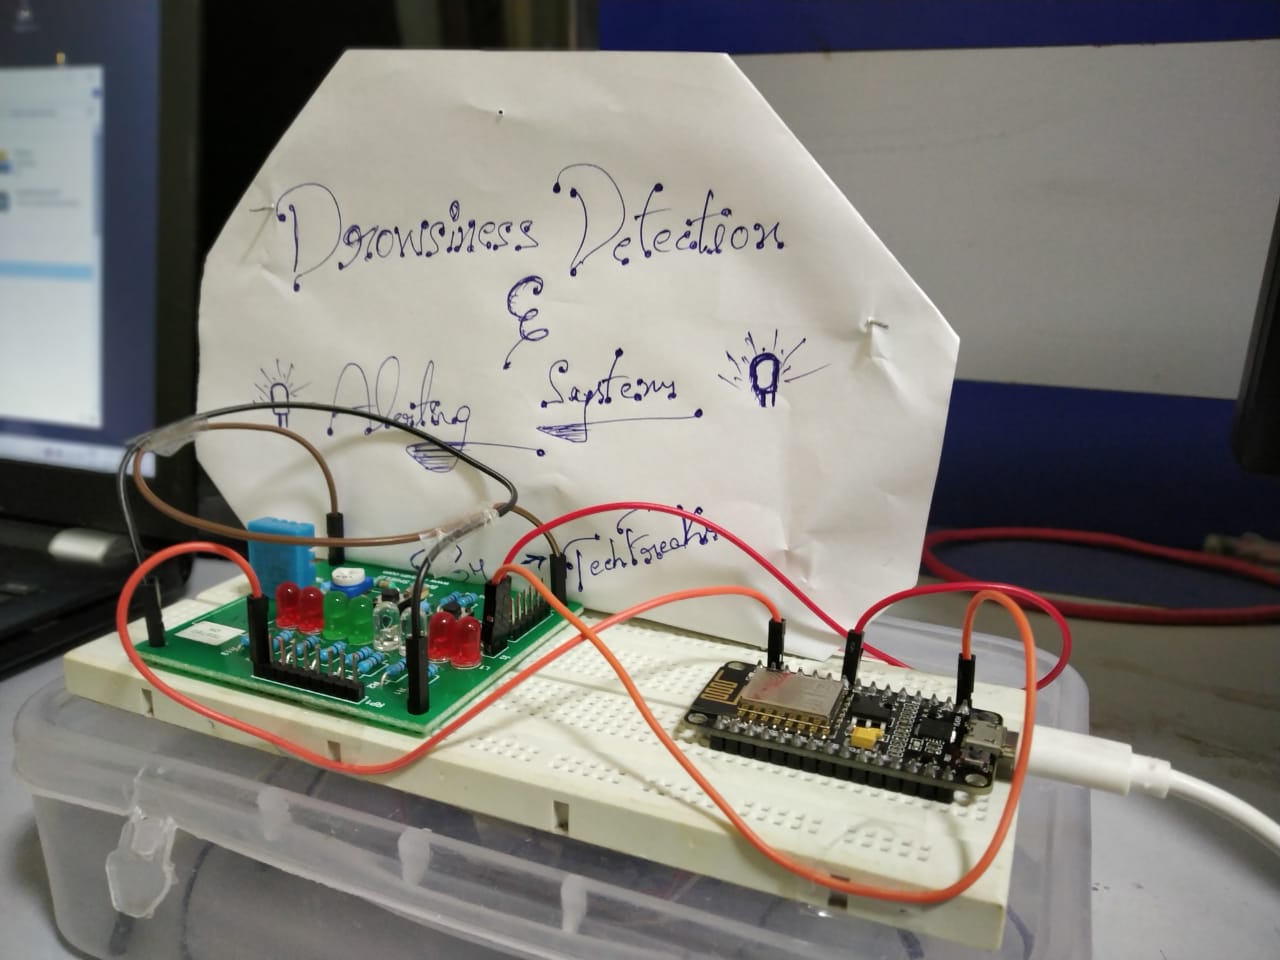 Drowsiness Detection
&
Alerting Systems
By → TechFreaks
RP1